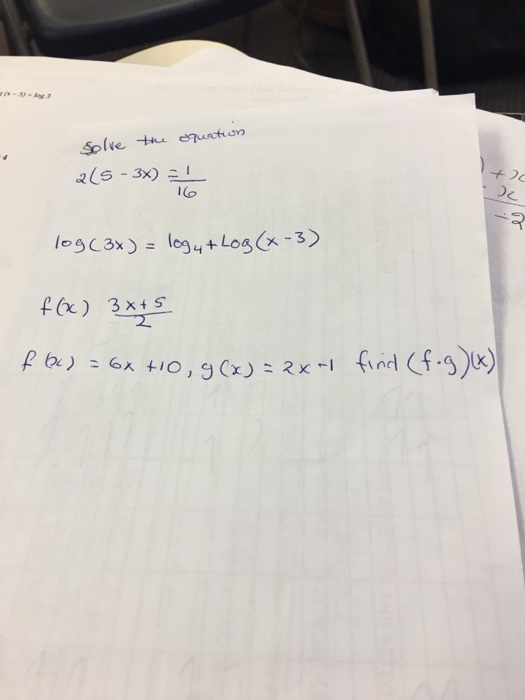 (x - 3) = log 3
4
Solve the equation
2(5 - 3x) = 1/16
log(3x) = log₄ + Log(x - 3)
f(x) 3x+5/2
f(x) = 6x + 10, g(x) = 2x - 1 find (f·g)(x)
) + x
x
-2